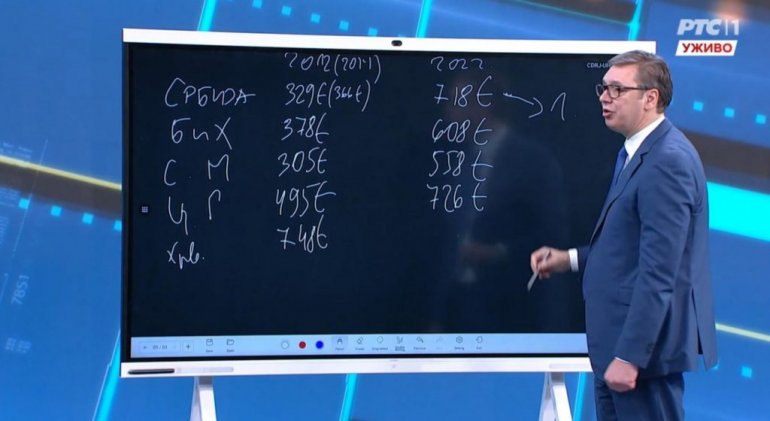 РТС 1
УЖИВО
2012 (2011) 2022
СРБИЈА 329€ (366€) 718€ → 1
БиХ 378€ 608€
С. М 305€ 558€
Ц. Г 495€ 726€
Хрв. 748€